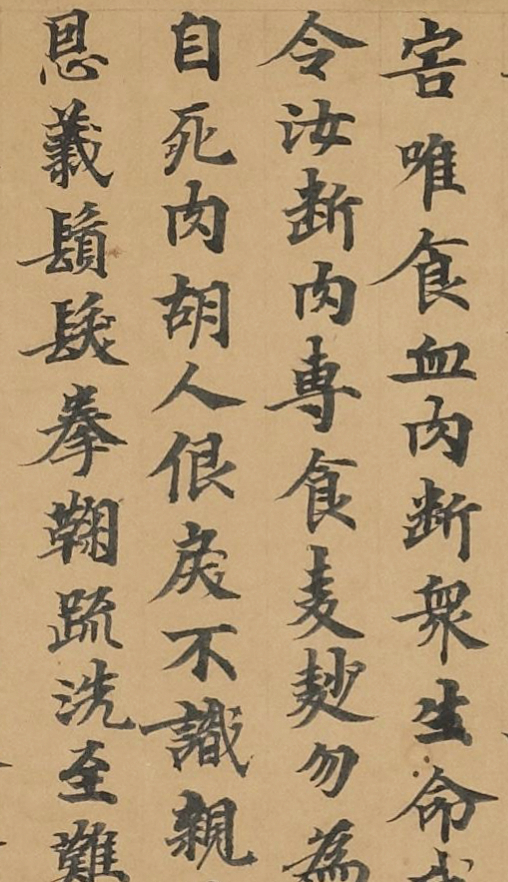 害唯食血肉断衆生命
令汝断肉専食麦麨勿為
自死肉胡人佷戾不識親
恩義鬚髮拳鞠踈洗至難